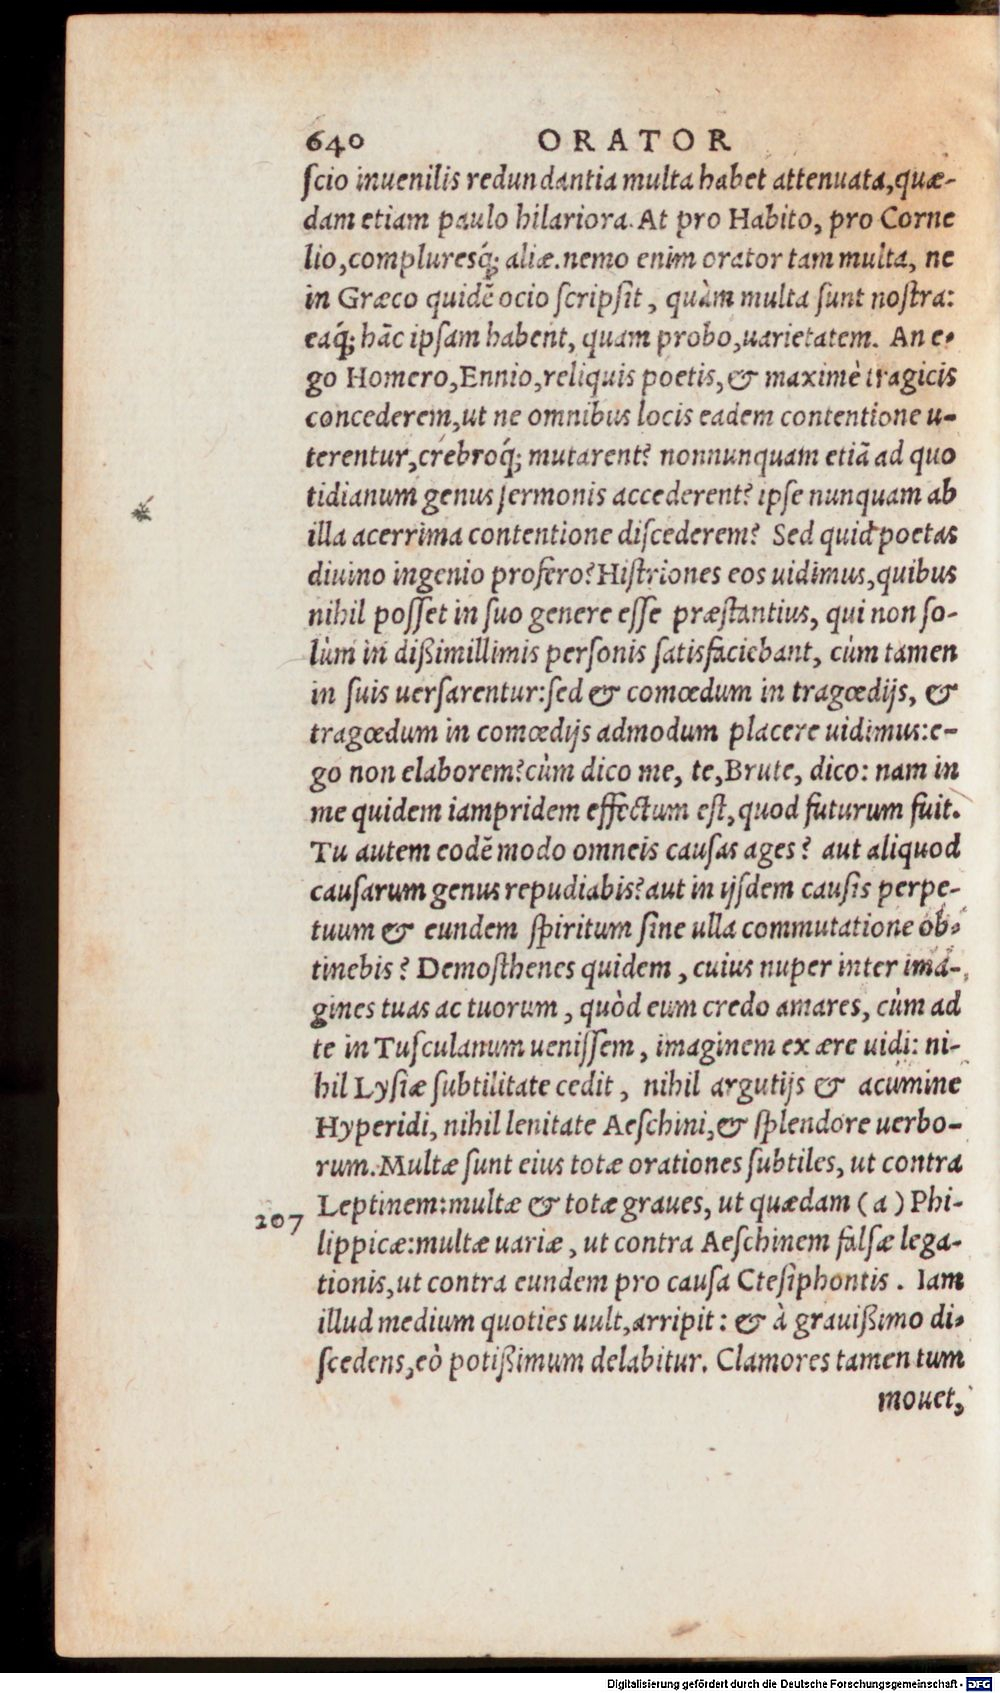 640 ORATOR
ſcio inuenilis redundantia multa habet attenuata, quæ-
dam etiam paulo hilariora. At pro Habito, pro Corne
lio, compluresq́; aliæ. nemo enim orator tam multa, ne
in Græco quidē ocio ſcripſit, quàm multa ſunt noſtra:
eaq́; hāc ipſam habent, quam probo, uarietatem. An e-
go Homero, Ennio, reliquis poetis, & maximè tragicis
concederem, ut ne omnibus locis eadem contentione u-
terentur, crebroq́; mutarent? nonnunquam etiā ad quo
tidianum genus ſermonis accederent? ipſe nunquam ab
illa acerrima contentione diſcederem? Sed quid poetas
diuino ingenio profero? Hiſtriones eos uidimus, quibus
nihil poſſet in ſuo genere eſſe præſtantius, qui non ſo-
lùm in dißimillimis perſonis ſatisfaciebant, cùm tamen
in ſuis uerſarentur: ſed & comœdum in tragœdijs, &
tragœdum in comœdijs admodum placere uidimus: e-
go non elaborem? cùm dico me, te, Brute, dico: nam in
me quidem iampridem effectum eſt, quod futurum fuit.
Tu autem eodē modo omneis cauſas ages? aut aliquod
cauſarum genus repudiabis? aut in ijſdem cauſis perpe-
tuum & eundem ſpiritum ſine ulla commutatione ob-
tinebis? Demoſthenes quidem, cuius nuper inter ima-
gines tuas ac tuorum, quòd eum credo amares, cùm ad
te in Tuſculanum ueniſſem, imaginem ex ære uidi: ni-
hil Lyſiæ ſubtilitate cedit, nihil argutijs & acumine
Hyperidi, nihil lenitate Aeſchini, & ſplendore uerbo-
rum. Multæ ſunt eius totæ orationes ſubtiles, ut contra
Leptinem: multæ & totæ graues, ut quædam (a) Phi-
207
lippicæ: multæ uariæ, ut contra Aeſchinem falſæ lega-
tionis, ut contra eundem pro cauſa Cteſiphontis. Iam
illud medium quoties uult, arripit: & à grauißimo di-
ſcedens, eò potißimum delabitur. Clamores tamen tum
mouet,
Digitalisierung gefördert durch die Deutsche Forschungsgemeinschaft - DFG